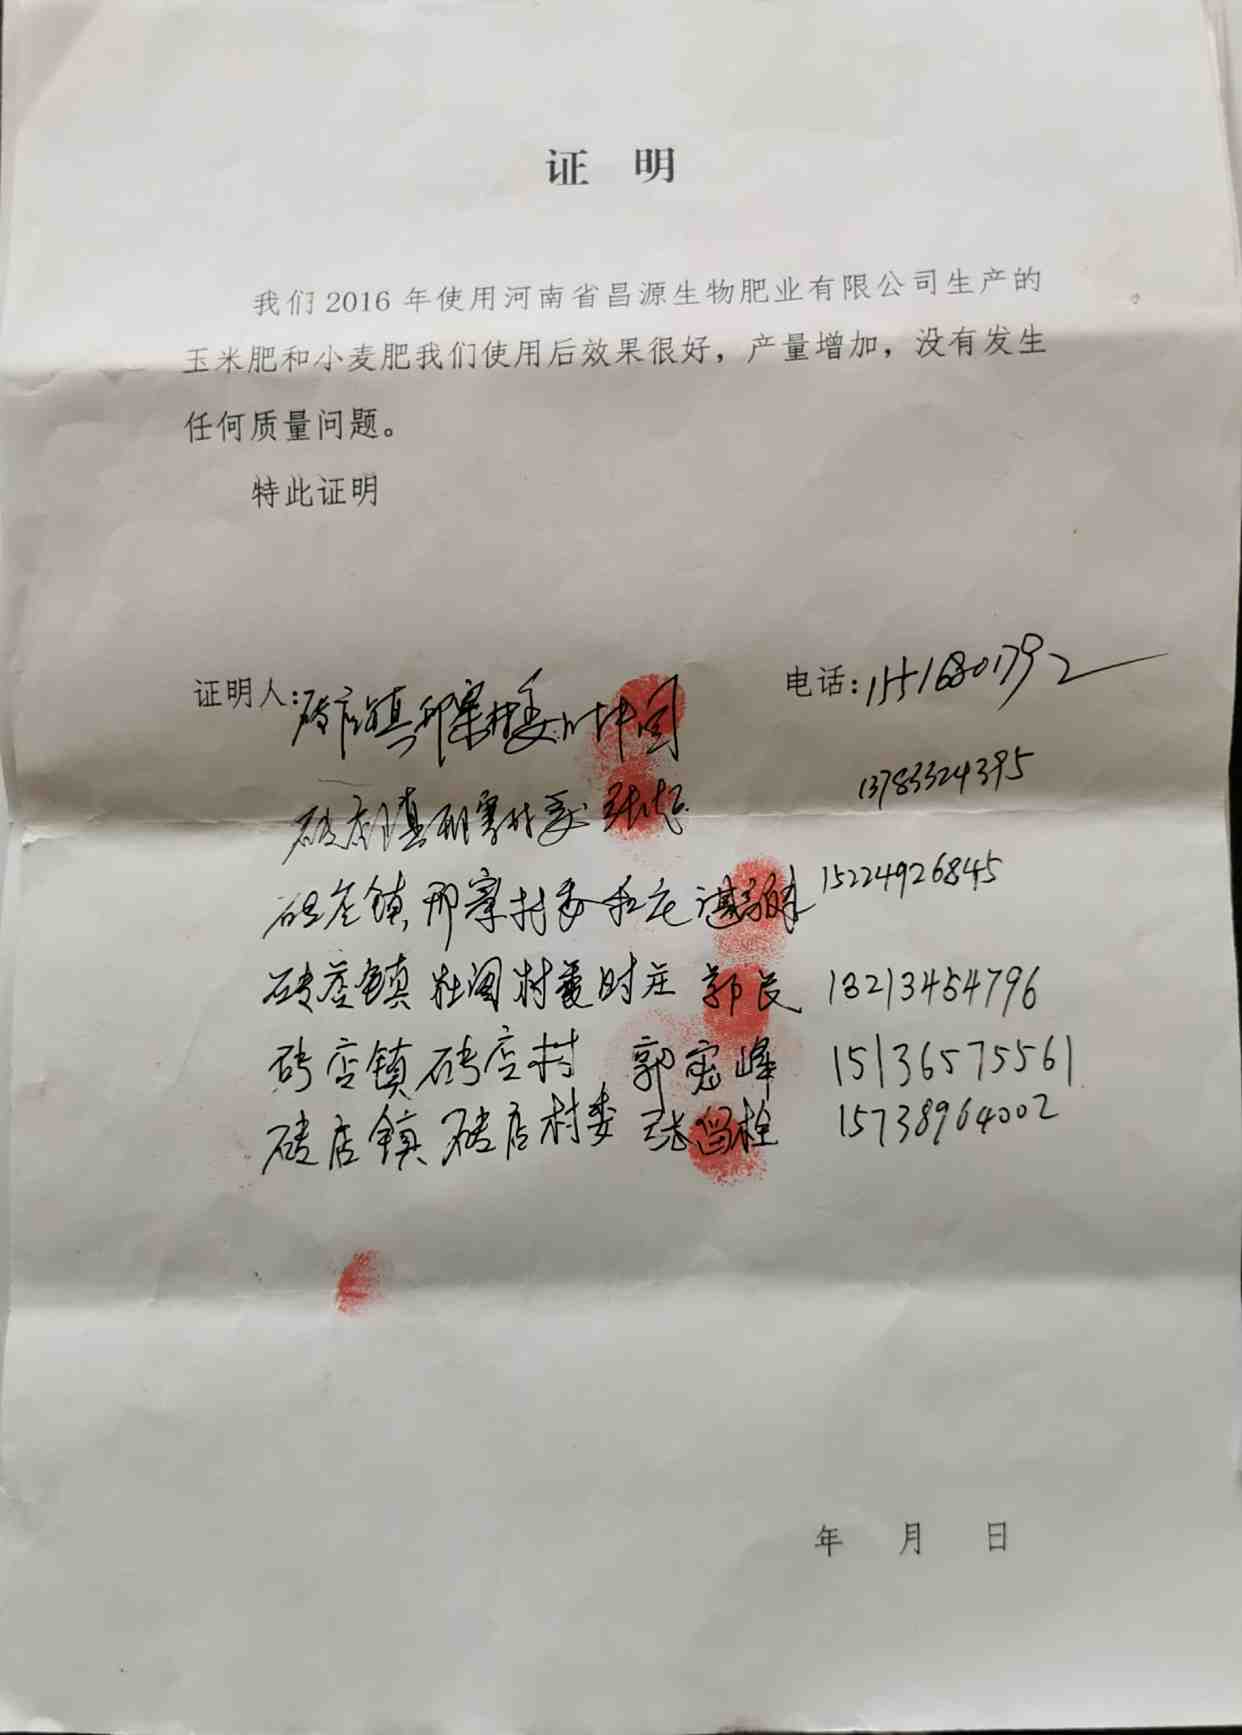 证 明
我们 2016 年使用河南省昌源生物肥业有限公司生产的
玉米肥和小麦肥我们使用后效果很好，产量增加，没有发生
任何质量问题。
特此证明
证明人：砖店镇邢寨村委 电话：15516801792
砖店镇邢寨村委 张志 13783324395
砖店镇邢寨村委 15224926845
砖店镇 村委时庄 郭良 13213454796
砖店镇砖店村 郭宏峰 15136575561
砖店镇砖店村委 张留栓 15738964002
年 月 日